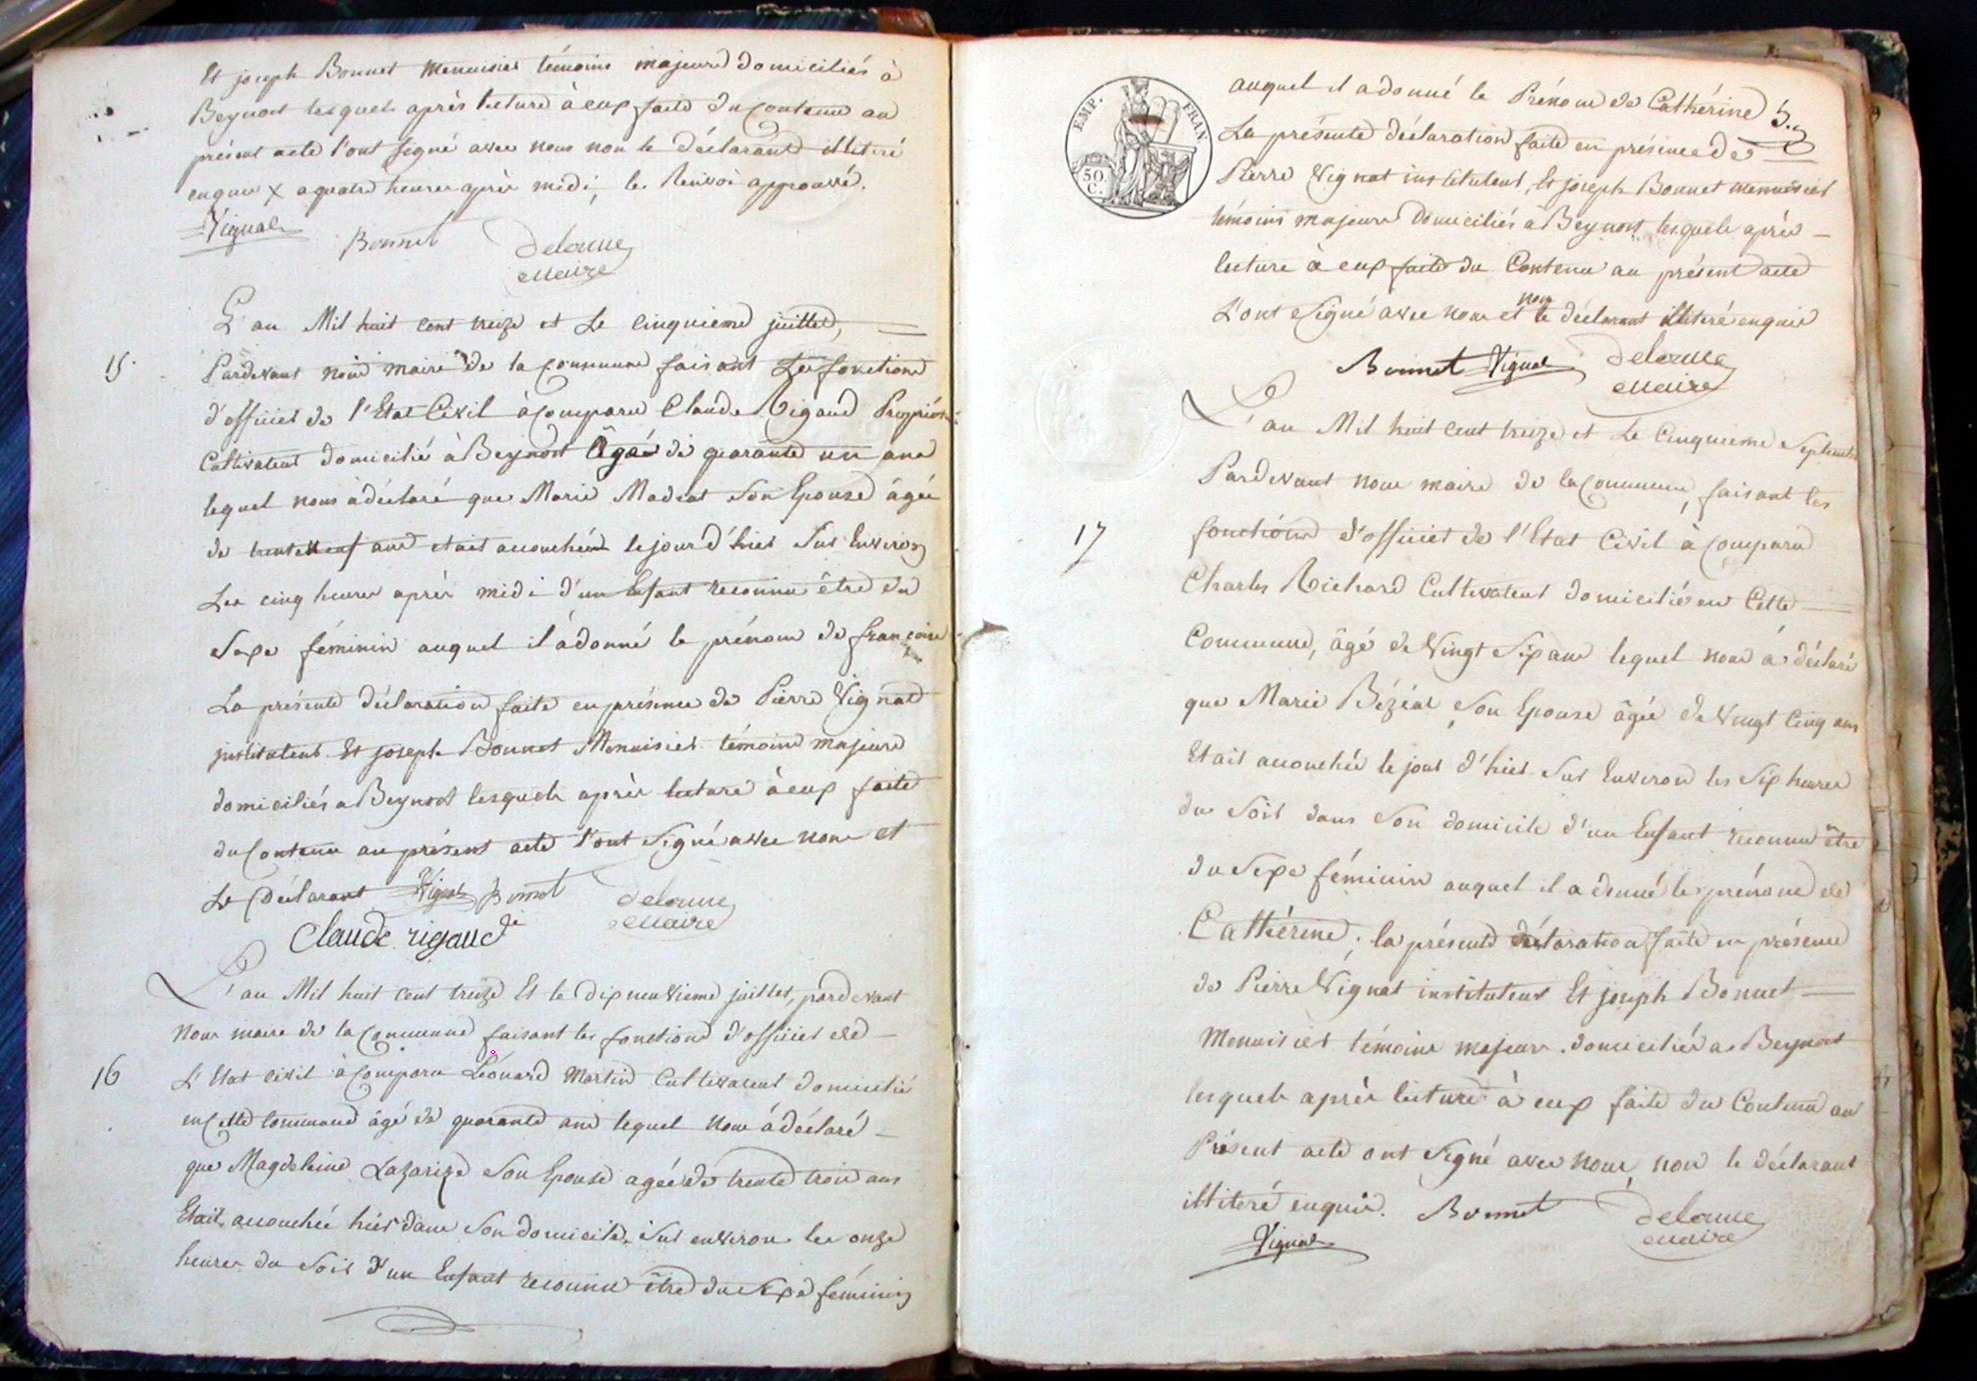 Et joseph Bonnet Menuisier témoins majeurs domiciliés à
Beynost lesquels après lecture à eux faite du Contenu au
présent acte l'ont signé avec nous non le déclarant illiteré
enquis X a quatre heures après midi, le Renvoi approuvé.
Vignat
Bonnet
Delorme
Maire
L'an Mil huit cent treize et Le cinquieme juillet,
15.
Pardevant nous maire de la Commune faisant Les fonctions
d'officier de l'Etat Civil à comparu Claude Rigaud Propriét
Cultivateur domicilié à Beynost Âgée de quarante un ans
lequel nous à déclaré que Marie Madeat Son Epouse âgée
de trente neuf ans etait accouchée le jour d'hier Sur Environ
Les cinq heures après midi d'un Enfant reconnu être du
Sexe féminin auquel il à donné le prénom de françoise
La présente déclaration faite en présence de Pierre Vignat
instituteur Et joseph Bonnet Menuisier témoins majeurs
domiciliés a Beynost lesquels après lecture à eux faite
du Contenu au présent acte l'ont Signé avec nous et
Le Déclarant Vignat Bonnet
Delorme
Maire
Claude rigaud
L'an Mil huit cent treize Et le dix neuvieme juillet, pardevant
Nous maire de la Commune faisant les fonctions d'officier de
16
L'Etat civil à comparu Léonard Martin Cultivateur domicilié
en Cette commune âgé de quarante ans lequel nous à déclaré
que Magdeleine Lazarize Son Epouse agée de trente trois ans
Etait accouchée hier dans Son domicile, Sur environ les onze
heures du Soir d'un Enfant reconnu être du Sexe féminin
EMP. FRAN
50
C.
auquel il a donné le Prénom de Cathérine 5.
La présente déclaration faite en présence de
Pierre Vignat instituteur, Et joseph Bonnet menuisier
témoins majeurs Domiciliés à Beynost, lesquels après
lecture à eux faite du Contenu au présent acte
L'ont Signé avec nous et non le déclarant illiteré enquis
Bonnet Vignat
Delorme
Maire
L'an Mil huit cent treize et Le Cinquieme Septembre
Pardevant nous maire de la Commune, faisant les
17
fonctions d'officier de l'Etat Civil à comparu
Charles Richard Cultivateur domicilié en Cette
Commune, âgé de Vingt Six ans lequel nous à déclaré
que Marie Béziat Son Epouse âgée de Vingt Cinq ans
Etait accouchée le jour d'hier Sur Environ les Six heures
du Soir dans Son domicile d'un Enfant reconnu être
du Sexe féminin auquel il a donné le prénom de
Cathérine, la présente déclaration faite en présence
de Pierre Vignat instituteur Et joseph Bonnet
Menuisier témoins majeurs domiciliés a Beynost
lesquels après lecture à eux faite du Contenu au
Présent acte ont Signé avec nous, non le déclarant
illiteré enquis. Bonnet
Delorme
Maire
Vignat